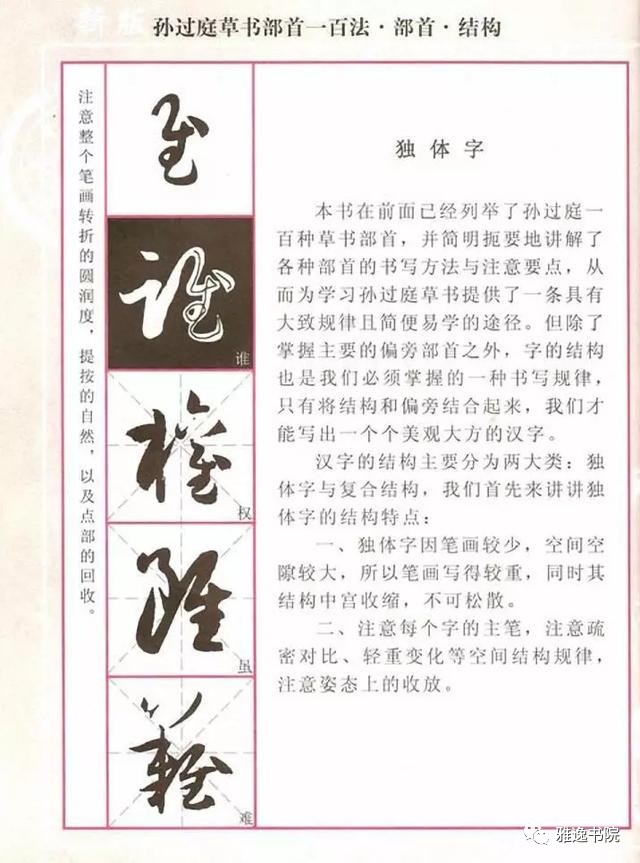 孙过庭草书部首一百法·部首·结构
注意整个笔画转折的圆润度，提按的自然，以及点部的回收。
谁
权
虽
难
独体字
本书在前面已经列举了孙过庭一
百种草书部首，并简明扼要地讲解了
各种部首的书写方法与注意要点，从
而为学习孙过庭草书提供了一条具有
大致规律且简便易学的途径。但除了
掌握主要的偏旁部首之外，字的结构
也是我们必须掌握的一种书写规律，
只有将结构和偏旁结合起来，我们才
能写出一个个美观大方的汉字。
汉字的结构主要分为两大类：独
体字与复合结构，我们首先来讲讲独
体字的结构特点：
一、独体字因笔画较少，空间空
隙较大，所以笔画写得较重，同时其
结构中宫收缩，不可松散。
二、注意每个字的主笔，注意疏
密对比、轻重变化等空间结构规律，
注意姿态上的收放。
雅逸书院